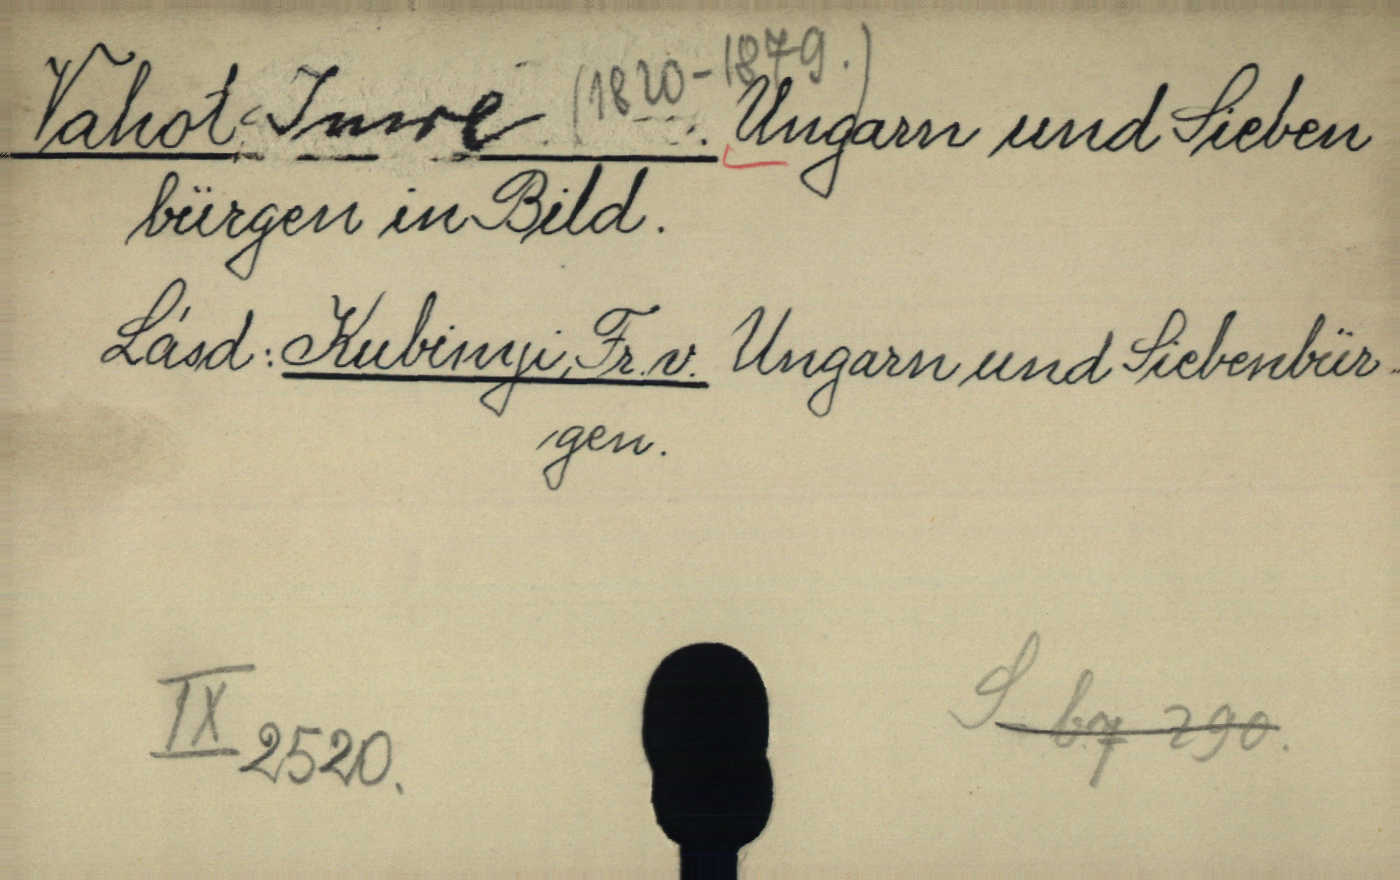 Vahot Imre (1820-1879.) Ungarn und Sieben
bürgen in Bild.
Lásd: Kubinyi, Fr. v. Ungarn und Siebenbür-
gen.
IX 2520.
S 790.